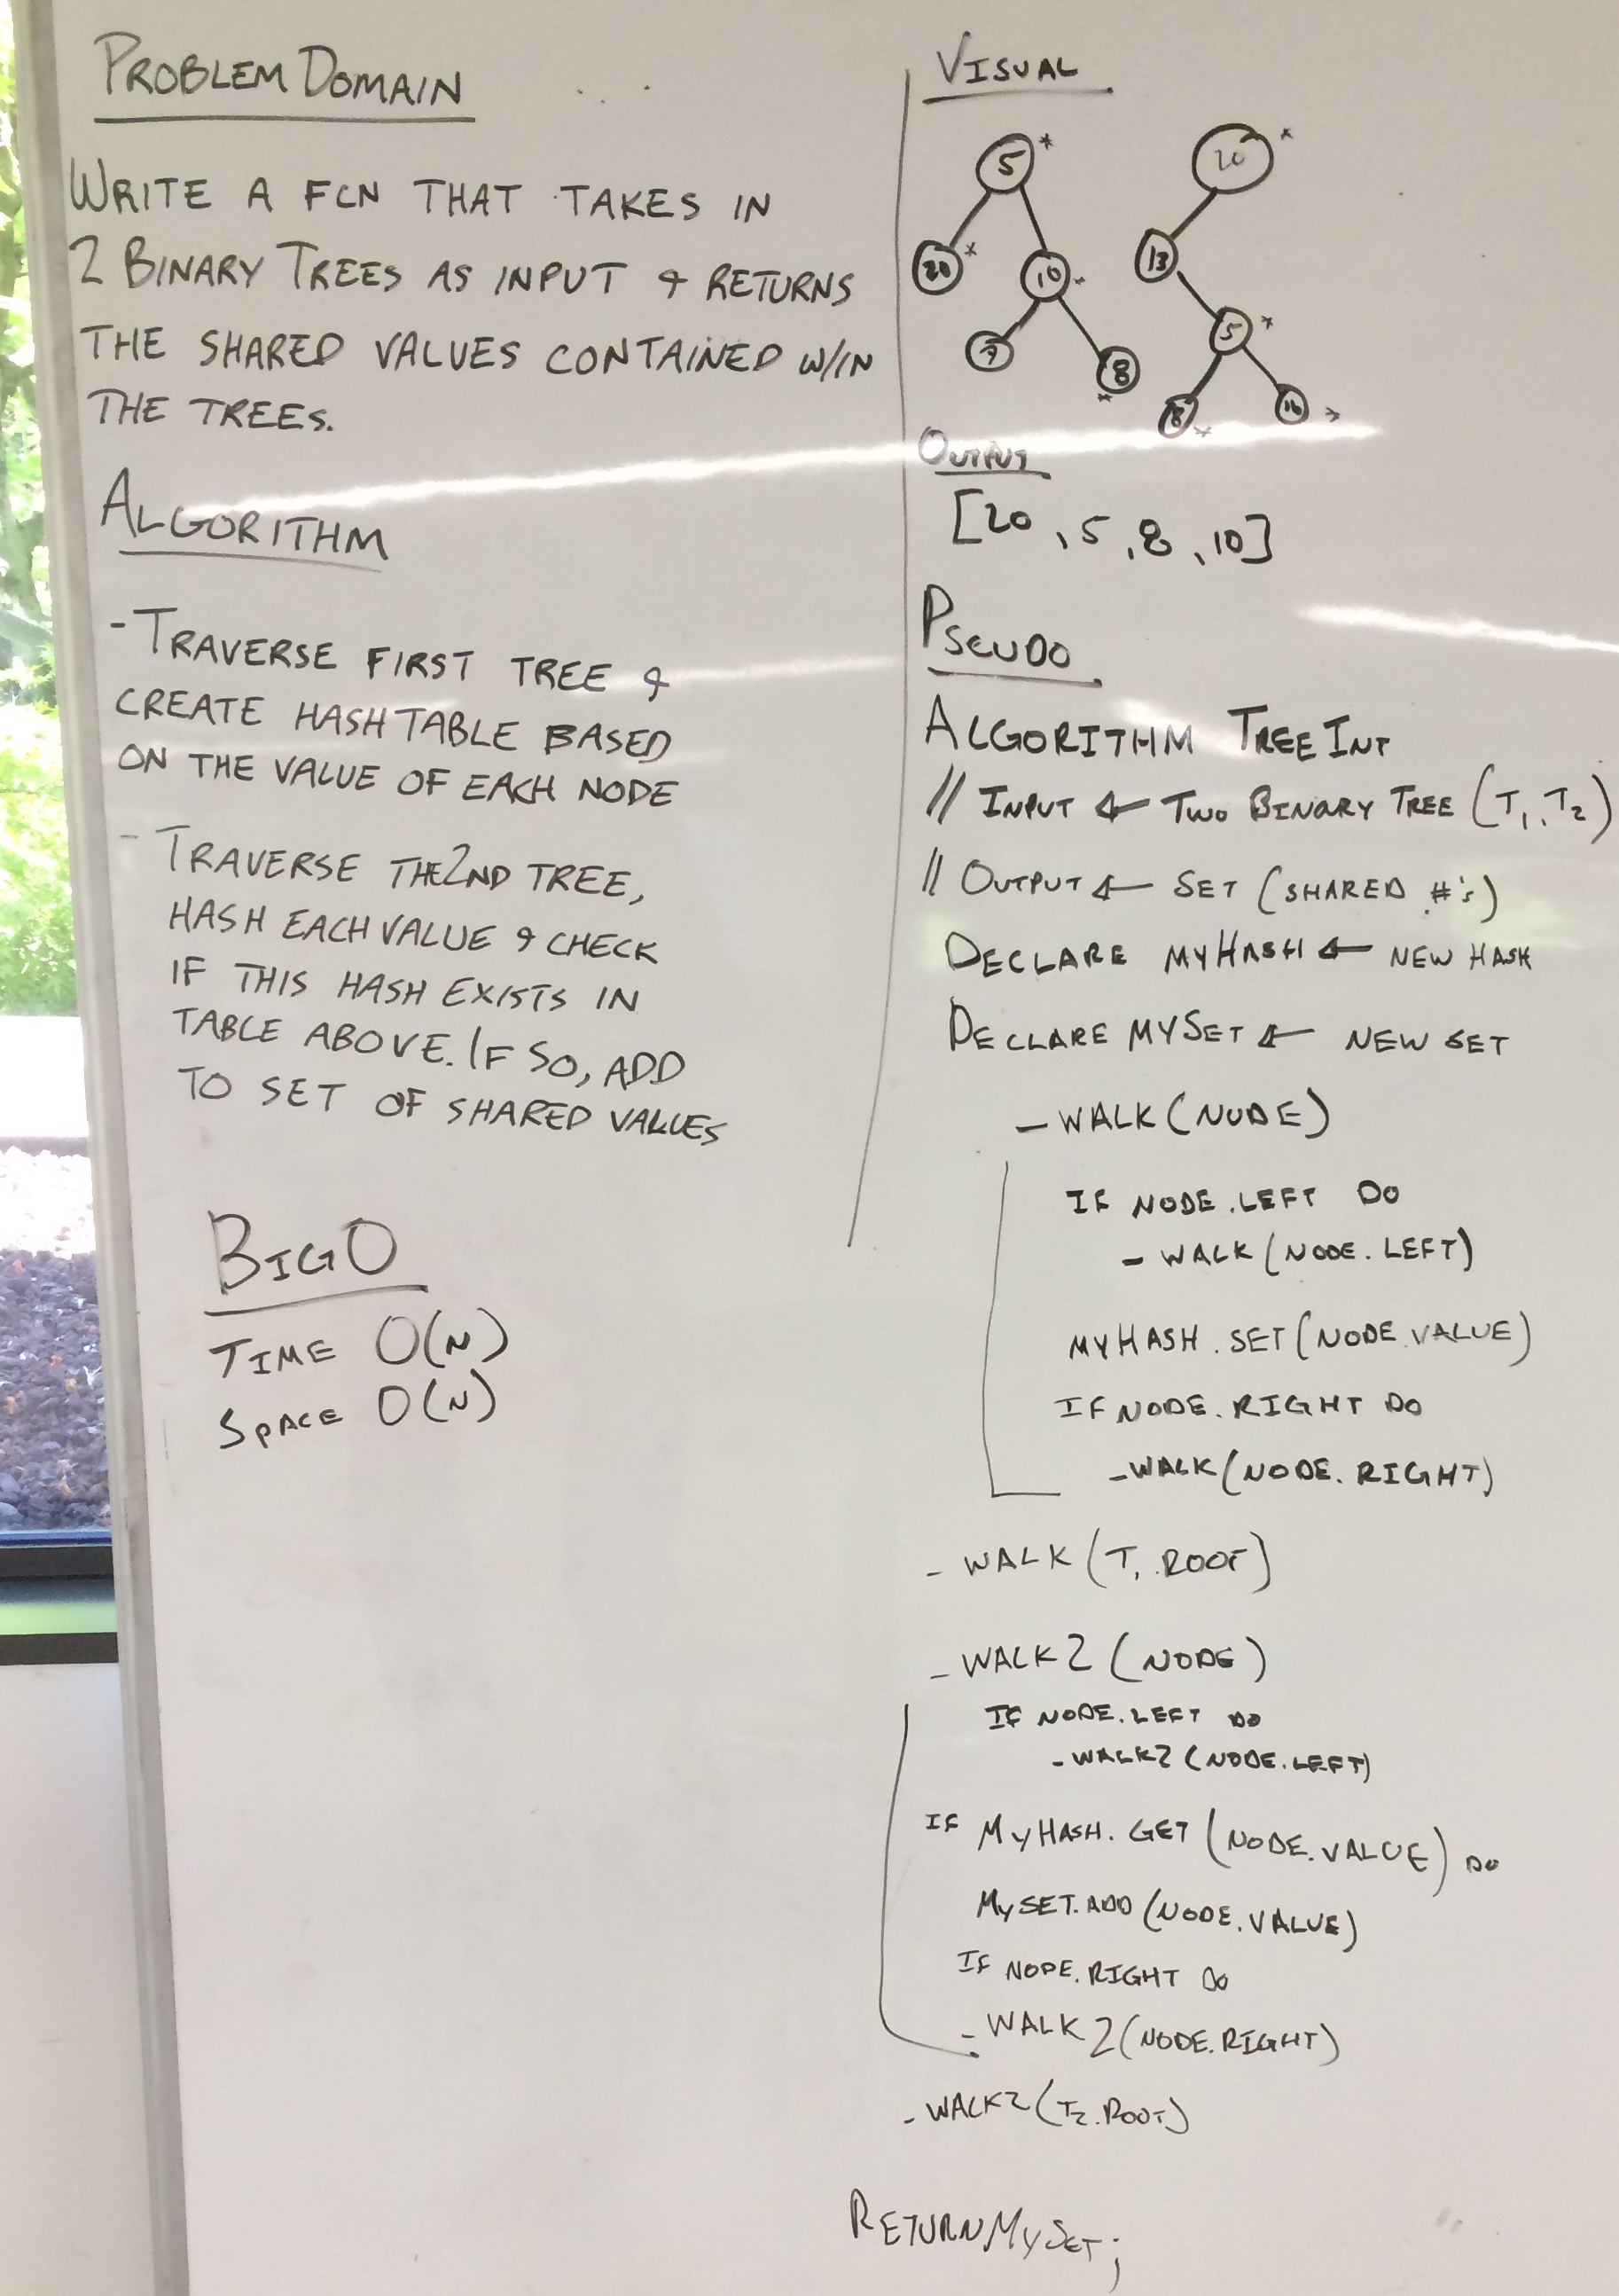 PROBLEM DOMAIN
WRITE A FCN THAT TAKES IN
2 BINARY TREES AS INPUT & RETURNS
THE SHARED VALUES CONTAINED W/IN
THE TREES.
ALGORITHM
- TRAVERSE FIRST TREE &
CREATE HASHTABLE BASED
ON THE VALUE OF EACH NODE
- TRAVERSE THE 2ND TREE,
HASH EACH VALUE & CHECK
IF THIS HASH EXISTS IN
TABLE ABOVE. IF SO, ADD
TO SET OF SHARED VALUES
BIG O
TIME O(N)
SPACE O(N)
VISUAL
5 *
20 *
20 *
10 *
13
7
8 *
5 *
8 *
10 *
OUTPUT
[20, 5, 8, 10]
PSEUDO
ALGORITHM TREEINT
// INPUT ← TWO BINARY TREE (T1, T2)
// OUTPUT ← SET (SHARED #'s)
DECLARE MYHASH ← NEW HASH
DECLARE MYSET ← NEW SET
_WALK(NODE)
IF NODE.LEFT DO
_WALK(NODE.LEFT)
MYHASH.SET(NODE.VALUE)
IF NODE.RIGHT DO
_WALK(NODE.RIGHT)
_WALK(T1.ROOT)
_WALK2(NODE)
IF NODE.LEFT DO
_WALK2(NODE.LEFT)
IF MYHASH.GET(NODE.VALUE) DO
MYSET.ADD(NODE.VALUE)
IF NODE.RIGHT DO
_WALK2(NODE.RIGHT)
_WALK2(T2.ROOT)
RETURN MYSET;